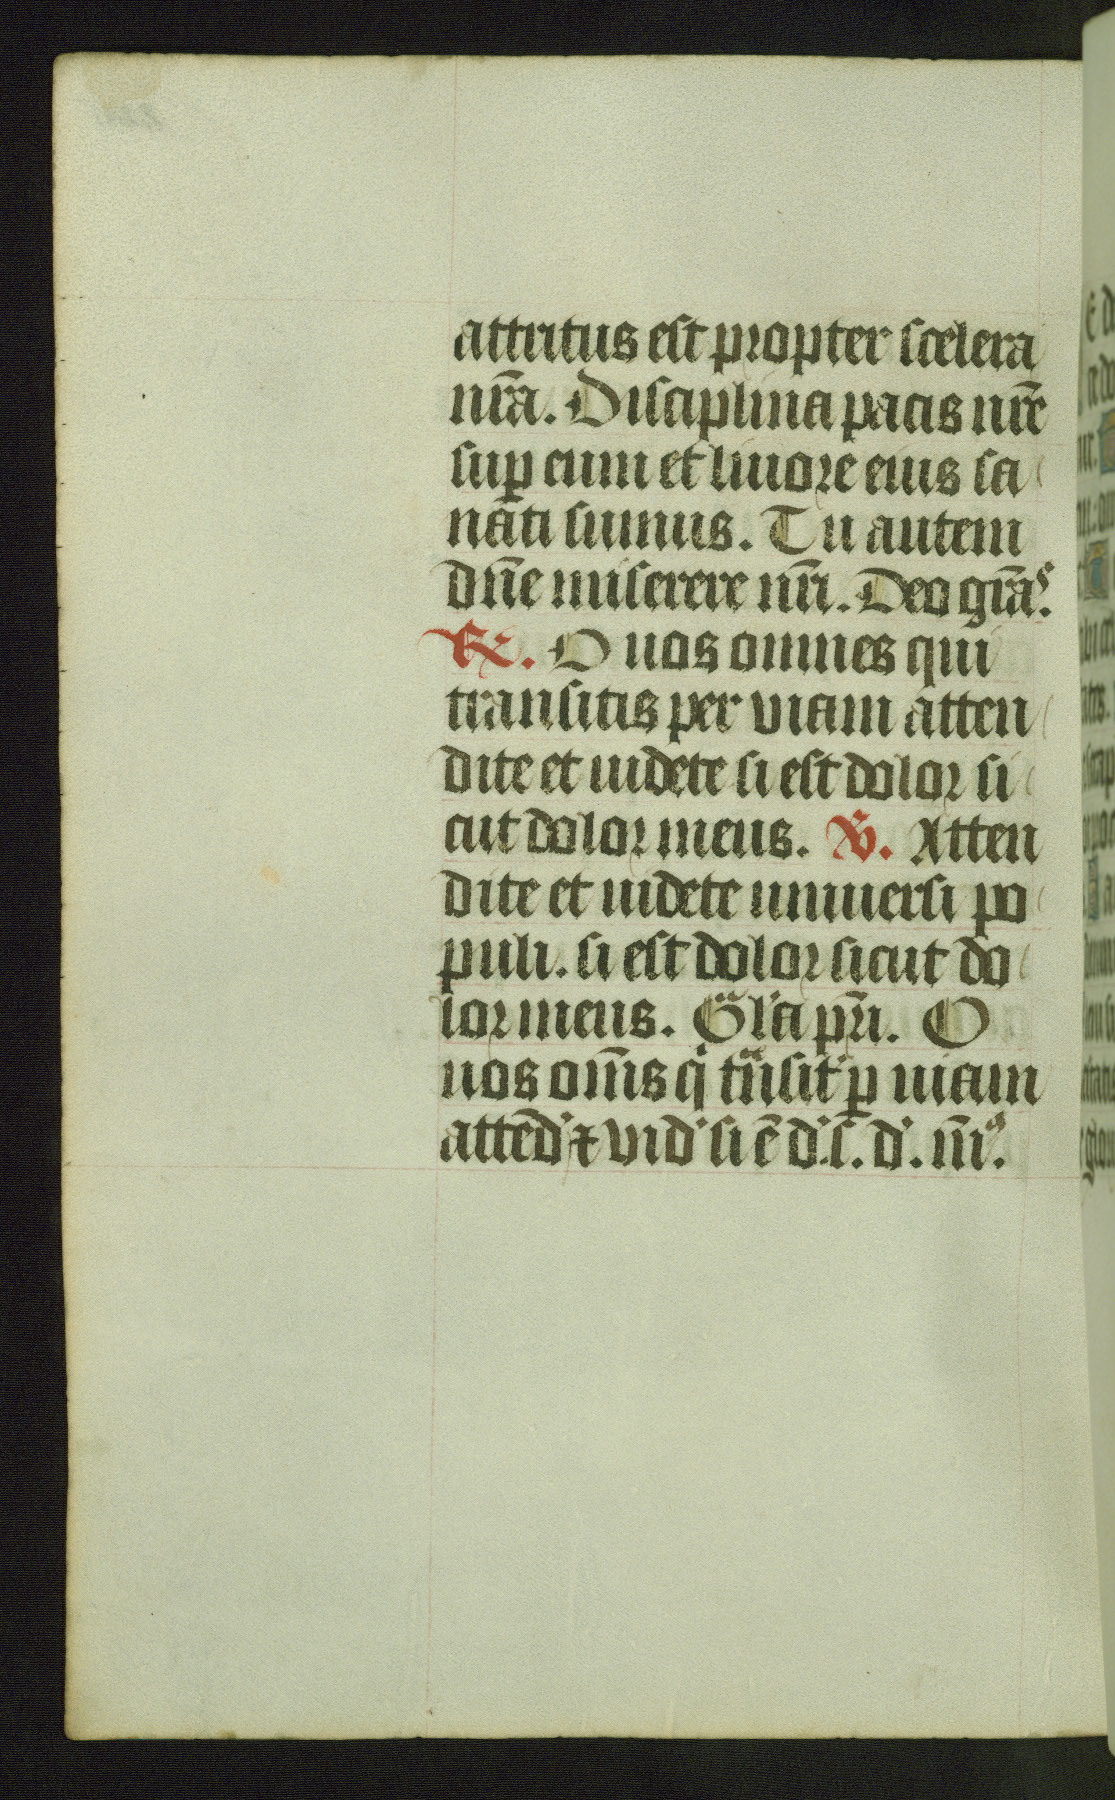 attritus est propter scelera
nr̄a. Disciplina pacis nr̄e
suꝑ eum et liuore eius sa
nati sumus. Tu autem
dn̄e miserere nr̄i. Deo gr̄aˢ.
℟. O uos omnes qui
transitis per viam atten
dite et uidete si est dolor si
cut dolor meus. ℣. Atten
dite et uidete uniuersi po
puli. si est dolor sicut do
lor meus. Gl'a pr̄i. O
uos om̄s q̇ tn̄sit' ꝑ uiam
attēd' ⁊ vid' si ē d'. s. d'. m̄.ˢ